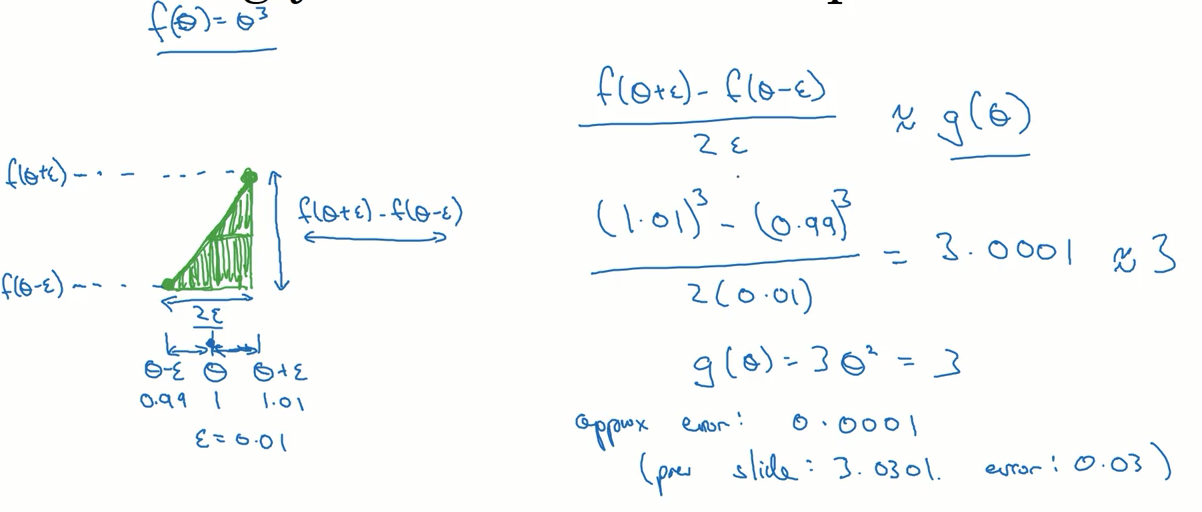 f(θ) = θ³
f(θ+ε) - f(θ-ε)
2ε
≈ g(θ)
f(θ+ε)
f(θ+ε) - f(θ-ε)
f(θ-ε)
2ε
θ-ε θ θ+ε
0.99 1 1.01
ε = 0.01
(1.01)³ - (0.99)³
2(0.01)
= 3.0001 ≈ 3
g(θ) = 3θ² = 3
approx error: 0.0001
(prev slide: 3.0301. error: 0.03)